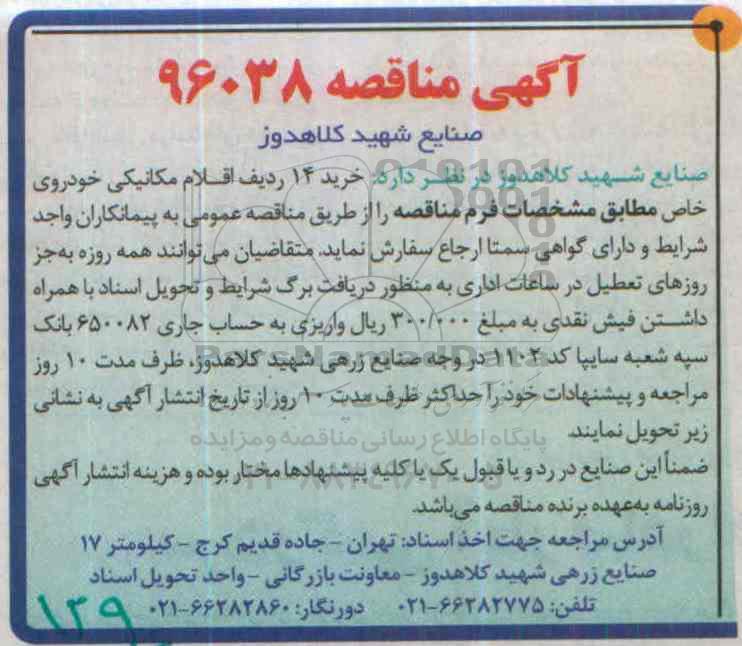 آگهی مناقصه ۹۶۰۳۸
صنایع شهید کلاهدوز
صنایع شهید کلاهدوز در نظر دارد: خرید ۱۴ ردیف اقلام مکانیکی خودروی
خاص مطابق مشخصات فرم مناقصه را از طریق مناقصه عمومی به پیمانکاران واجد
شرایط و دارای گواهی سمتا ارجاع سفارش نماید. متقاضیان می‌توانند همه روزه به‌جز
روزهای تعطیل در ساعات اداری به منظور دریافت برگ شرایط و تحویل اسناد با همراه
داشتن فیش نقدی به مبلغ ۳۰۰/۰۰۰ ریال واریزی به حساب جاری ۶۵۰۰۸۲ بانک
سپه شعبه سایپا کد ۱۱۰۲ در وجه صنایع زرهی شهید کلاهدوز، ظرف مدت ۱۰ روز
مراجعه و پیشنهادات خود را حداکثر ظرف مدت ۱۰ روز از تاریخ انتشار آگهی به نشانی
زیر تحویل نمایند.
ضمناً این صنایع در رد و یا قبول یک یا کلیه پیشنهادها مختار بوده و هزینه انتشار آگهی
روزنامه به‌عهده برنده مناقصه می‌باشد.
آدرس مراجعه جهت اخذ اسناد: تهران - جاده قدیم کرج - کیلومتر ۱۷
صنایع زرهی شهید کلاهدوز - معاونت بازرگانی - واحد تحویل اسناد
تلفن: ۶۶۲۸۲۷۷۵-۰۲۱ دورنگار: ۶۶۲۸۲۸۶۰-۰۲۱
۱۳۹
ParsNamadData
پایگاه اطلاع رسانی مناقصه و مزایده